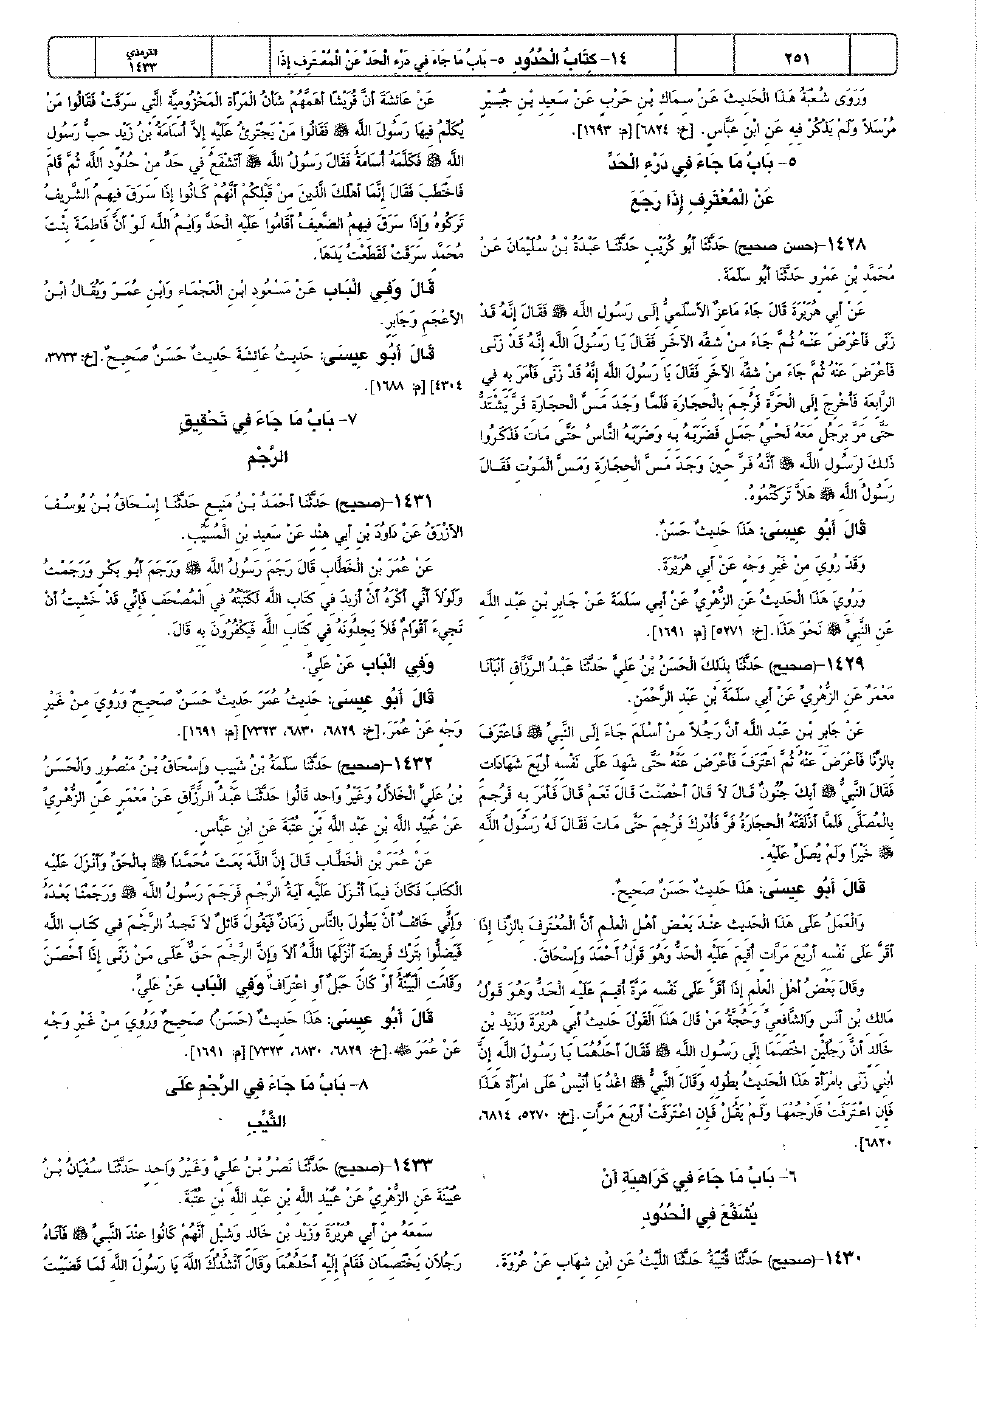 ٢٥١
١٤- كِتَابُ الْحُدُودِ ٥- بَابُ مَا جَاءَ فِي دَرْءِ الْحَدِّ عَنْ الْمُعْتَرِفِ إِذَا
الترمذي
١٤٣٣
وَرَوَى شُعْبَةُ هَذَا الْحَدِيثَ عَنْ سِمَاكِ بْنِ حَرْبٍ عَنْ سَعِيدِ بْنِ جُبَيْرٍ
مُرْسَلاً وَلَمْ يَذْكُرْ فِيهِ عَنِ ابْنِ عَبَّاسٍ. [خ: ٦٨٢٤] [م: ١٦٩٣].
٥- بَابُ مَا جَاءَ فِي دَرْءِ الْحَدِّ
عَنْ الْمُعْتَرِفِ إِذَا رَجَعَ
١٤٢٨-(حسن صحيح) حَدَّثَنَا أَبُو كُرَيْبٍ حَدَّثَنَا عَبْدَةُ بْنُ سُلَيْمَانَ عَنْ
مُحَمَّدِ بْنِ عَمْرٍو حَدَّثَنَا أَبُو سَلَمَةَ.
عَنْ أَبِي هُرَيْرَةَ قَالَ جَاءَ مَاعِزٌ الأَسْلَمِيُّ إِلَى رَسُولِ اللَّهِ ﷺ فَقَالَ إِنَّهُ قَدْ
زَنَى فَأَعْرَضَ عَنْهُ ثُمَّ جَاءَ مِنْ شِقِّهِ الآخَرِ فَقَالَ يَا رَسُولَ اللَّهِ إِنَّهُ قَدْ زَنَى
فَأَعْرَضَ عَنْهُ ثُمَّ جَاءَ مِنْ شِقِّهِ الآخَرِ فَقَالَ يَا رَسُولَ اللَّهِ إِنَّهُ قَدْ زَنَى فَأَمَرَ بِهِ فِي
الرَّابِعَةِ فَأُخْرِجَ إِلَى الْحَرَّةِ فَرُجِمَ بِالْحِجَارَةِ فَلَمَّا وَجَدَ مَسَّ الْحِجَارَةِ فَرَّ يَشْتَدُّ
حَتَّى مَرَّ بِرَجُلٍ مَعَهُ لَحْيُ جَمَلٍ فَضَرَبَهُ بِهِ وَضَرَبَهُ النَّاسُ حَتَّى مَاتَ فَذَكَرُوا
ذَلِكَ لِرَسُولِ اللَّهِ ﷺ أَنَّهُ فَرَّ حِينَ وَجَدَ مَسَّ الْحِجَارَةِ وَمَسَّ الْمَوْتِ فَقَالَ
رَسُولُ اللَّهِ ﷺ هَلاَّ تَرَكْتُمُوهُ.
قَالَ أَبُو عِيسَى: هَذَا حَدِيثٌ حَسَنٌ.
وَقَدْ رُوِيَ مِنْ غَيْرِ وَجْهٍ عَنْ أَبِي هُرَيْرَةَ.
وَرُوِيَ هَذَا الْحَدِيثُ عَنِ الزُّهْرِيِّ عَنْ أَبِي سَلَمَةَ عَنْ جَابِرِ بْنِ عَبْدِ اللَّهِ
عَنِ النَّبِيِّ ﷺ نَحْوَ هَذَا. [خ: ٥٢٧١] [م: ١٦٩١].
١٤٢٩-(صحيح) حَدَّثَنَا بِذَلِكَ الْحَسَنُ بْنُ عَلِيٍّ حَدَّثَنَا عَبْدُ الرَّزَّاقِ أَنْبَأَنَا
مَعْمَرٌ عَنِ الزُّهْرِيِّ عَنْ أَبِي سَلَمَةَ بْنِ عَبْدِ الرَّحْمَنِ.
عَنْ جَابِرِ بْنِ عَبْدِ اللَّهِ أَنَّ رَجُلاً مِنْ أَسْلَمَ جَاءَ إِلَى النَّبِيِّ ﷺ فَاعْتَرَفَ
بِالزِّنَا فَأَعْرَضَ عَنْهُ ثُمَّ اعْتَرَفَ فَأَعْرَضَ عَنْهُ حَتَّى شَهِدَ عَلَى نَفْسِهِ أَرْبَعَ شَهَادَاتٍ
فَقَالَ النَّبِيُّ ﷺ أَبِكَ جُنُونٌ قَالَ لاَ قَالَ أَحْصَنْتَ قَالَ نَعَمْ قَالَ فَأَمَرَ بِهِ فَرُجِمَ
بِالْمُصَلَّى فَلَمَّا أَذْلَقَتْهُ الْحِجَارَةُ فَرَّ فَأُدْرِكَ فَرُجِمَ حَتَّى مَاتَ فَقَالَ لَهُ رَسُولُ اللَّهِ
ﷺ خَيْرًا وَلَمْ يُصَلِّ عَلَيْهِ.
قَالَ أَبُو عِيسَى: هَذَا حَدِيثٌ حَسَنٌ صَحِيحٌ.
وَالْعَمَلُ عَلَى هَذَا الْحَدِيثِ عِنْدَ بَعْضِ أَهْلِ الْعِلْمِ أَنَّ الْمُعْتَرِفَ بِالزِّنَا إِذَا
أَقَرَّ عَلَى نَفْسِهِ أَرْبَعَ مَرَّاتٍ أُقِيمَ عَلَيْهِ الْحَدُّ وَهُوَ قَوْلُ أَحْمَدَ وَإِسْحَاقَ.
وَقَالَ بَعْضُ أَهْلِ الْعِلْمِ إِذَا أَقَرَّ عَلَى نَفْسِهِ مَرَّةً أُقِيمَ عَلَيْهِ الْحَدُّ وَهُوَ قَوْلُ
مَالِكِ بْنِ أَنَسٍ وَالشَّافِعِيِّ وَحُجَّةُ مَنْ قَالَ هَذَا الْقَوْلَ حَدِيثُ أَبِي هُرَيْرَةَ وَزَيْدِ بْنِ
خَالِدٍ أَنَّ رَجُلَيْنِ اخْتَصَمَا إِلَى رَسُولِ اللَّهِ ﷺ فَقَالَ أَحَدُهُمَا يَا رَسُولَ اللَّهِ إِنَّ
ابْنِي زَنَى بِامْرَأَةِ هَذَا الْحَدِيثُ بِطُولِهِ وَقَالَ النَّبِيُّ ﷺ اغْدُ يَا أُنَيْسُ عَلَى امْرَأَةِ هَذَا
فَإِنِ اعْتَرَفَتْ فَارْجُمْهَا وَلَمْ يَقُلْ فَإِنِ اعْتَرَفَتْ أَرْبَعَ مَرَّاتٍ. [خ: ٥٢٧٠، ٦٨١٤،
٦٨٢٠].
٦- بَابُ مَا جَاءَ فِي كَرَاهِيَةِ أَنْ
يُشَفَّعَ فِي الْحُدُودِ
١٤٣٠-(صحيح) حَدَّثَنَا قُتَيْبَةُ حَدَّثَنَا اللَّيْثُ عَنِ ابْنِ شِهَابٍ عَنْ عُرْوَةَ.
عَنْ عَائِشَةَ أَنَّ قُرَيْشًا أَهَمَّهُمْ شَأْنُ الْمَرْأَةِ الْمَخْزُومِيَّةِ الَّتِي سَرَقَتْ فَقَالُوا مَنْ
يُكَلِّمُ فِيهَا رَسُولَ اللَّهِ ﷺ فَقَالُوا مَنْ يَجْتَرِئُ عَلَيْهِ إِلاَّ أُسَامَةُ بْنُ زَيْدٍ حِبُّ رَسُولِ
اللَّهِ ﷺ فَكَلَّمَهُ أُسَامَةُ فَقَالَ رَسُولُ اللَّهِ ﷺ أَتَشْفَعُ فِي حَدٍّ مِنْ حُدُودِ اللَّهِ ثُمَّ قَامَ
فَاخْتَطَبَ فَقَالَ إِنَّمَا أَهْلَكَ الَّذِينَ مِنْ قَبْلِكُمْ أَنَّهُمْ كَانُوا إِذَا سَرَقَ فِيهِمُ الشَّرِيفُ
تَرَكُوهُ وَإِذَا سَرَقَ فِيهِمُ الضَّعِيفُ أَقَامُوا عَلَيْهِ الْحَدَّ وَايْمُ اللَّهِ لَوْ أَنَّ فَاطِمَةَ بِنْتَ
مُحَمَّدٍ سَرَقَتْ لَقَطَعْتُ يَدَهَا.
قَالَ وَفِي الْبَاب عَنْ مَسْعُودِ ابْنِ الْعَجْمَاءِ وَابْنِ عُمَرَ وَيُقَالُ ابْنُ
الأَعْجَمِ وَجَابِرٍ.
قَالَ أَبُو عِيسَى: حَدِيثُ عَائِشَةَ حَدِيثٌ حَسَنٌ صَحِيحٌ. [خ: ٣٧٣٣،
٤٣٠٤] [م: ١٦٨٨].
٧- بَابُ مَا جَاءَ فِي تَحْقِيقِ
الرَّجْمِ
١٤٣١-(صحيح) حَدَّثَنَا أَحْمَدُ بْنُ مَنِيعٍ حَدَّثَنَا إِسْحَاقُ بْنُ يُوسُفَ
الأَزْرَقُ عَنْ دَاوُدَ بْنِ أَبِي هِنْدٍ عَنْ سَعِيدِ بْنِ الْمُسَيِّبِ.
عَنْ عُمَرَ بْنِ الْخَطَّابِ قَالَ رَجَمَ رَسُولُ اللَّهِ ﷺ وَرَجَمَ أَبُو بَكْرٍ وَرَجَمْتُ
وَلَوْلاَ أَنِّي أَكْرَهُ أَنْ أَزِيدَ فِي كِتَابِ اللَّهِ لَكَتَبْتُهُ فِي الْمُصْحَفِ فَإِنِّي قَدْ خَشِيتُ أَنْ
تَجِيءَ أَقْوَامٌ فَلاَ يَجِدُونَهُ فِي كِتَابِ اللَّهِ فَيَكْفُرُونَ بِهِ قَالَ.
وَفِي الْبَاب عَنْ عَلِيٍّ.
قَالَ أَبُو عِيسَى: حَدِيثُ عُمَرَ حَدِيثٌ حَسَنٌ صَحِيحٌ وَرُوِيَ مِنْ غَيْرِ
وَجْهٍ عَنْ عُمَرَ. [خ: ٦٨٢٩، ٦٨٣٠، ٧٣٢٣] [م: ١٦٩١].
١٤٣٢-(صحيح) حَدَّثَنَا سَلَمَةُ بْنُ شَبِيبٍ وَإِسْحَاقُ بْنُ مَنْصُورٍ وَالْحَسَنُ
بْنُ عَلِيٍّ الْخَلاَّلُ وَغَيْرُ وَاحِدٍ قَالُوا حَدَّثَنَا عَبْدُ الرَّزَّاقِ عَنْ مَعْمَرٍ عَنِ الزُّهْرِيِّ
عَنْ عُبَيْدِ اللَّهِ بْنِ عَبْدِ اللَّهِ بْنِ عُتْبَةَ عَنِ ابْنِ عَبَّاسٍ.
عَنْ عُمَرَ بْنِ الْخَطَّابِ قَالَ إِنَّ اللَّهَ بَعَثَ مُحَمَّدًا ﷺ بِالْحَقِّ وَأَنْزَلَ عَلَيْهِ
الْكِتَابَ فَكَانَ فِيمَا أَنْزَلَ عَلَيْهِ آيَةُ الرَّجْمِ فَرَجَمَ رَسُولُ اللَّهِ ﷺ وَرَجَمْنَا بَعْدَهُ
وَإِنِّي خَائِفٌ أَنْ يَطُولَ بِالنَّاسِ زَمَانٌ فَيَقُولَ قَائِلٌ لاَ نَجِدُ الرَّجْمَ فِي كِتَابِ اللَّهِ
فَيَضِلُّوا بِتَرْكِ فَرِيضَةٍ أَنْزَلَهَا اللَّهُ أَلاَ وَإِنَّ الرَّجْمَ حَقٌّ عَلَى مَنْ زَنَى إِذَا أَحْصَنَ
وَقَامَتِ الْبَيِّنَةُ أَوْ كَانَ حَبَلٌ أَوِ اعْتِرَافٌ وَفِي الْبَاب عَنْ عَلِيٍّ.
قَالَ أَبُو عِيسَى: هَذَا حَدِيثٌ (حَسَنٌ) صَحِيحٌ وَرُوِيَ مِنْ غَيْرِ وَجْهٍ
عَنْ عُمَرَ ﷺ. [خ: ٦٨٢٩، ٦٨٣٠، ٧٣٢٣] [م: ١٦٩١].
٨- بَابُ مَا جَاءَ فِي الرَّجْمِ عَلَى
الثَّيِّبِ
١٤٣٣-(صحيح) حَدَّثَنَا نَصْرُ بْنُ عَلِيٍّ وَغَيْرُ وَاحِدٍ حَدَّثَنَا سُفْيَانُ بْنُ
عُيَيْنَةَ عَنِ الزُّهْرِيِّ عَنْ عُبَيْدِ اللَّهِ بْنِ عَبْدِ اللَّهِ بْنِ عُتْبَةَ.
سَمِعَهُ مِنْ أَبِي هُرَيْرَةَ وَزَيْدِ بْنِ خَالِدٍ وَشِبْلٍ أَنَّهُمْ كَانُوا عِنْدَ النَّبِيِّ ﷺ فَأَتَاهُ
رَجُلاَنِ يَخْتَصِمَانِ فَقَامَ إِلَيْهِ أَحَدُهُمَا وَقَالَ أَنْشُدُكَ اللَّهَ يَا رَسُولَ اللَّهِ لَمَا قَضَيْتَ